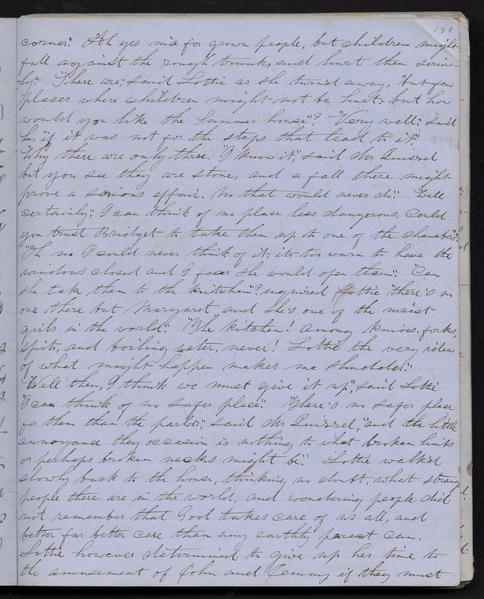 190
corner." "Ah yes nice for grown people, but children might
fall against the rough trunks and hurt them serious
ly." "There are," said Lottie as she turned away, "but few
places where children might not be hurt; but how
would you like the Summer house?" "Very well," said
he, "if it was not for the steps that lead to it."
"Why there are only three." "I know it," said Mr
but you see they are stone, and a fall there might
prove a serious affair. No that would never do." "Well
certainly," I can think of no place less dangerous. Could
you trust Bridget to take them up to one of the chambers"
"Oh no I could never think of it, its too warm to have the
windows closed and I fear she would open them." "Can
she take them to the kitchen"? inquired Lottie "there's no
one there but Margaret and she's one of the nicest
girls in the world." "The kitchen! Among knives, forks,
spits, and boiling water, never! Lottie the very idea
of what might happen makes me shudder."
"Well then, I think we must give it up," said Lottie
"I can think of no safer place." "There's no safer place
for them than the parlor," said Mr "and the little
annoyance they occasion is nothing to what broken limbs
or perhaps broken necks might be." Lottie walked
slowly back to the house, thinking, no doubt, what strange
people there are in the world, and wondering people did
not remember that God takes care of us all, and
better far better care than any earthly parent can.
Lottie however determined to give up her time to
the amusement of John and Jemmy if they must